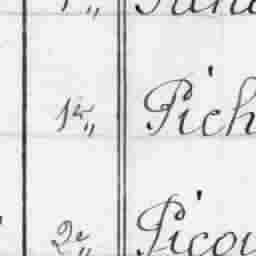 1er,, Pich
2e,, Picou